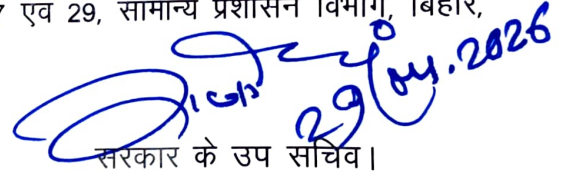 एवं 29, सामान्य प्रशासन विभाग, बिहार,
29/04.2026
सरकार के उप सचिव।